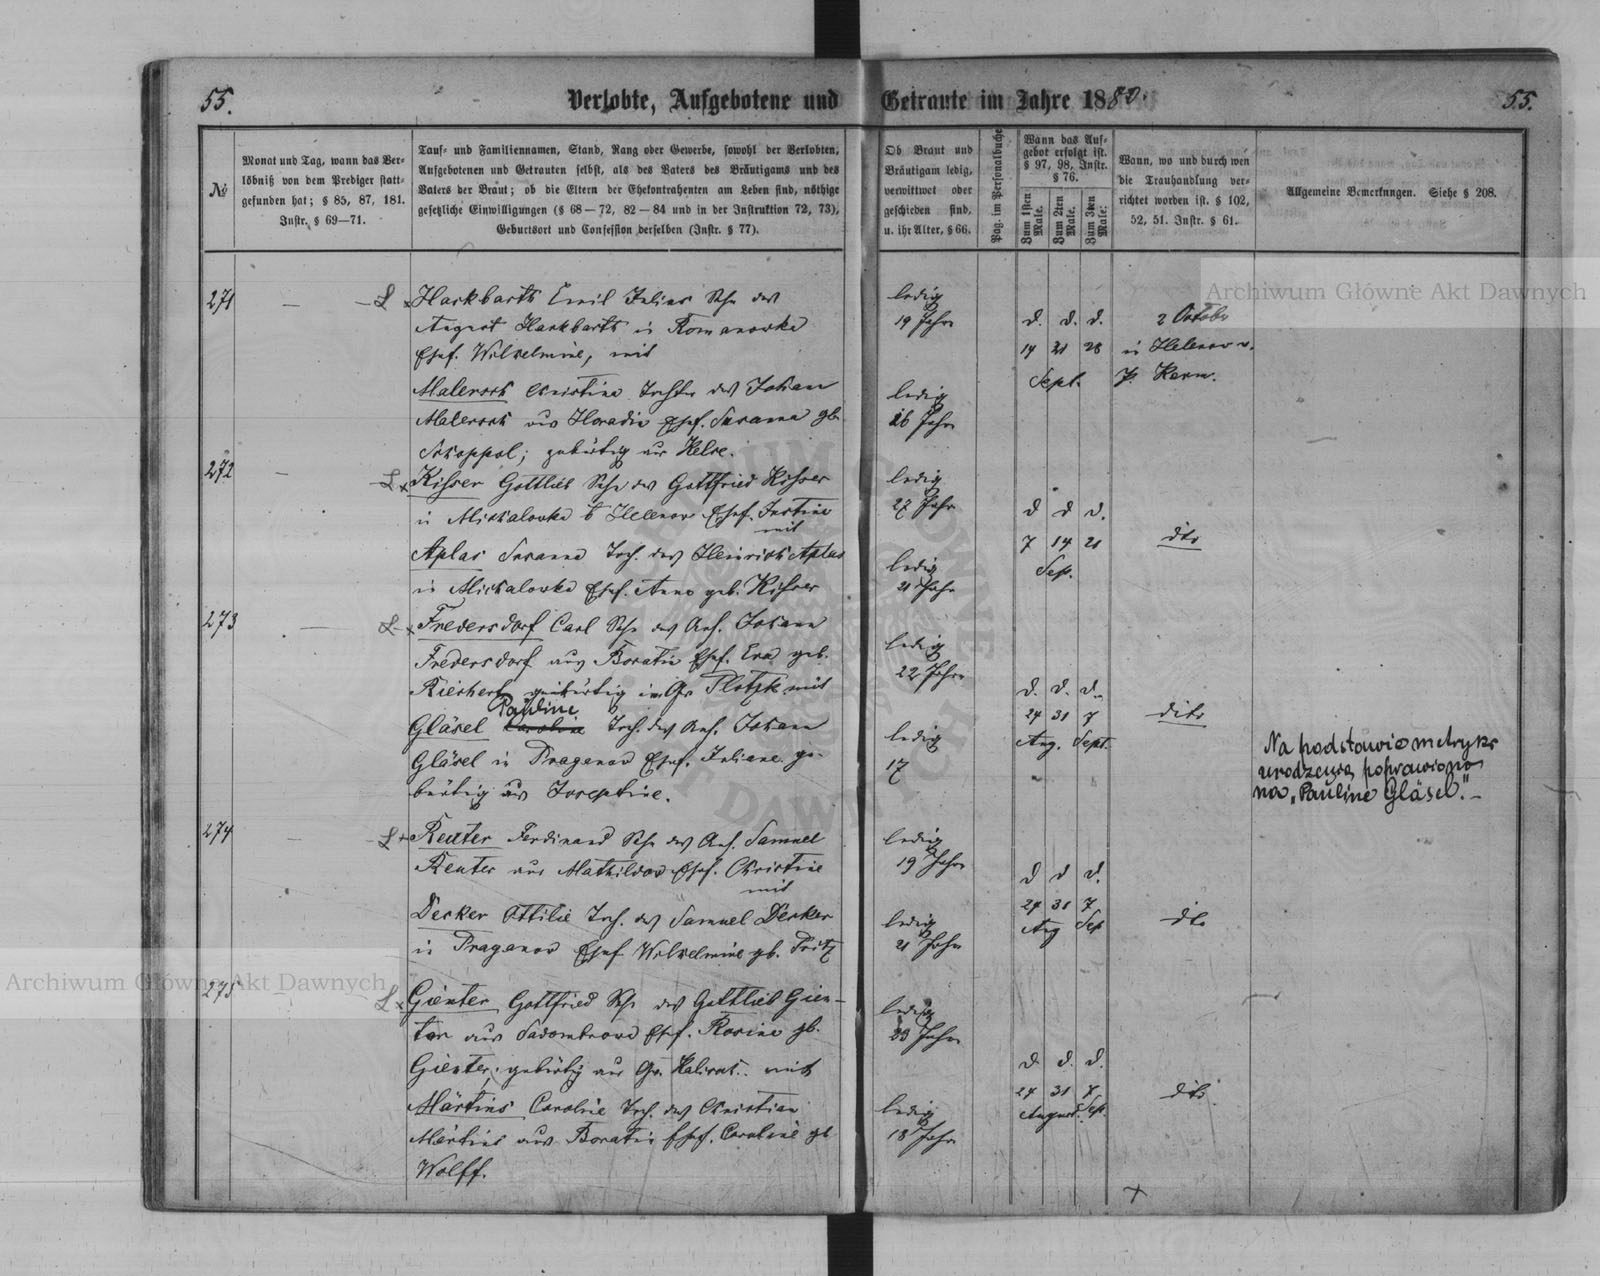 55.
Verlobte, Aufgebotene und
Getraute im Jahre 1880.
55.
№
Monat und Tag, wann das Ver-
löbniß von dem Prediger statt-
gefunden hat; § 85, 87, 181.
Instr. § 69—71.
Tauf- und Familiennamen, Stand, Rang oder Gewerbe, sowohl der Verlobten,
Aufgebotenen und Getrauten selbst, als des Vaters des Bräutigams und des
Vaters der Braut; ob die Eltern der Ehekontrahenten am Leben sind, nöthige
gesetzliche Einwilligungen (§ 68 — 72, 82 — 84 und in der Instruktion 72, 73),
Geburtsort und Confession derselben (Instr. § 77).
Ob Braut und
Bräutigam ledig,
verwittwet oder
geschieden sind,
u. ihr Alter, § 66.
Pag. im Personalbuche
Wann das Auf-
gebot erfolgt ist.
§ 97, 98, Instr.
§ 76.
Zum 1sten Male.
Zum 2ten Male.
Zum 3ten Male.
Wann, wo und durch wen
die Trauhandlung ver-
richtet worden ist. § 102,
52, 51. Instr. § 61.
Allgemeine Bemerkungen. Siehe § 208.
271
Hackbarth Emil Julius Sohn des
August Hackbarth in Romanowka
Ehef. Wilhelmine, mit
Christine Tochter des Johann
aus Horadio Ehef. Susanna gb.
gebürtig aus
ledig
19 Jahre
ledig
26 Jahre
d. d. d.
14 21 28
Sept.
2 October
in Helenow v.
P. Kerm.
272
Kisser Gottlieb Sohn des Gottfried Kisser
in Michalowka b Helenow Ehef. Justine
mit
Aplas Susanna Toch. des Heinrich Aplas
in Michalowka Ehef. Anna geb. Kisser
ledig
27 Jahre
ledig
21 Jahre
d d d.
7 14 21
Sep.
dito
273
Fredersdorf Carl Sohn des Ans. Johann
Fredersdorf aus Boratin Ehef. Eva geb.
Riechert gebürtig im Gv. Plotzk mit
Pauline
Gläsel Caroline Toch. des Ans. Johann
Gläsel in Draganow Ehef. Juliane ge-
bürtig aus Josephine.
ledig
22 Jahre
ledig
17
d. d. d.
24 31 7
Aug. Sept.
dito
Na podstawie metryki
urodzenia poprawiono
na „Pauline Gläsel."—
274
Reuter Ferdinand Sohn des Ans. Samuel
Reuter aus Mathildow Ehef. Christine
mit
Decker Ottilie Toch. des Samuel Decker
in Draganow Ehef. Wilhelmine gb. Fritz
ledig
19 Jahre
ledig
21 Jahre
d d d.
24 31 7
Aug Sep
dto
275
Gienter Gottfried Sohn des Gottlieb Gien-
ter aus Ehef. Rosine gb.
Gienter, gebürtig aus Gv. mit
Märtins Caroline Toch. des Christian
Märtins aus Boratin Ehef. Caroline gb
Wolff.
ledig
23 Jahre
ledig
18 Jahre
d. d. d.
24 31 7
August. Sep.
dito.
Archiwum Główne Akt Dawnych
Archiwum Główne Akt Dawnych